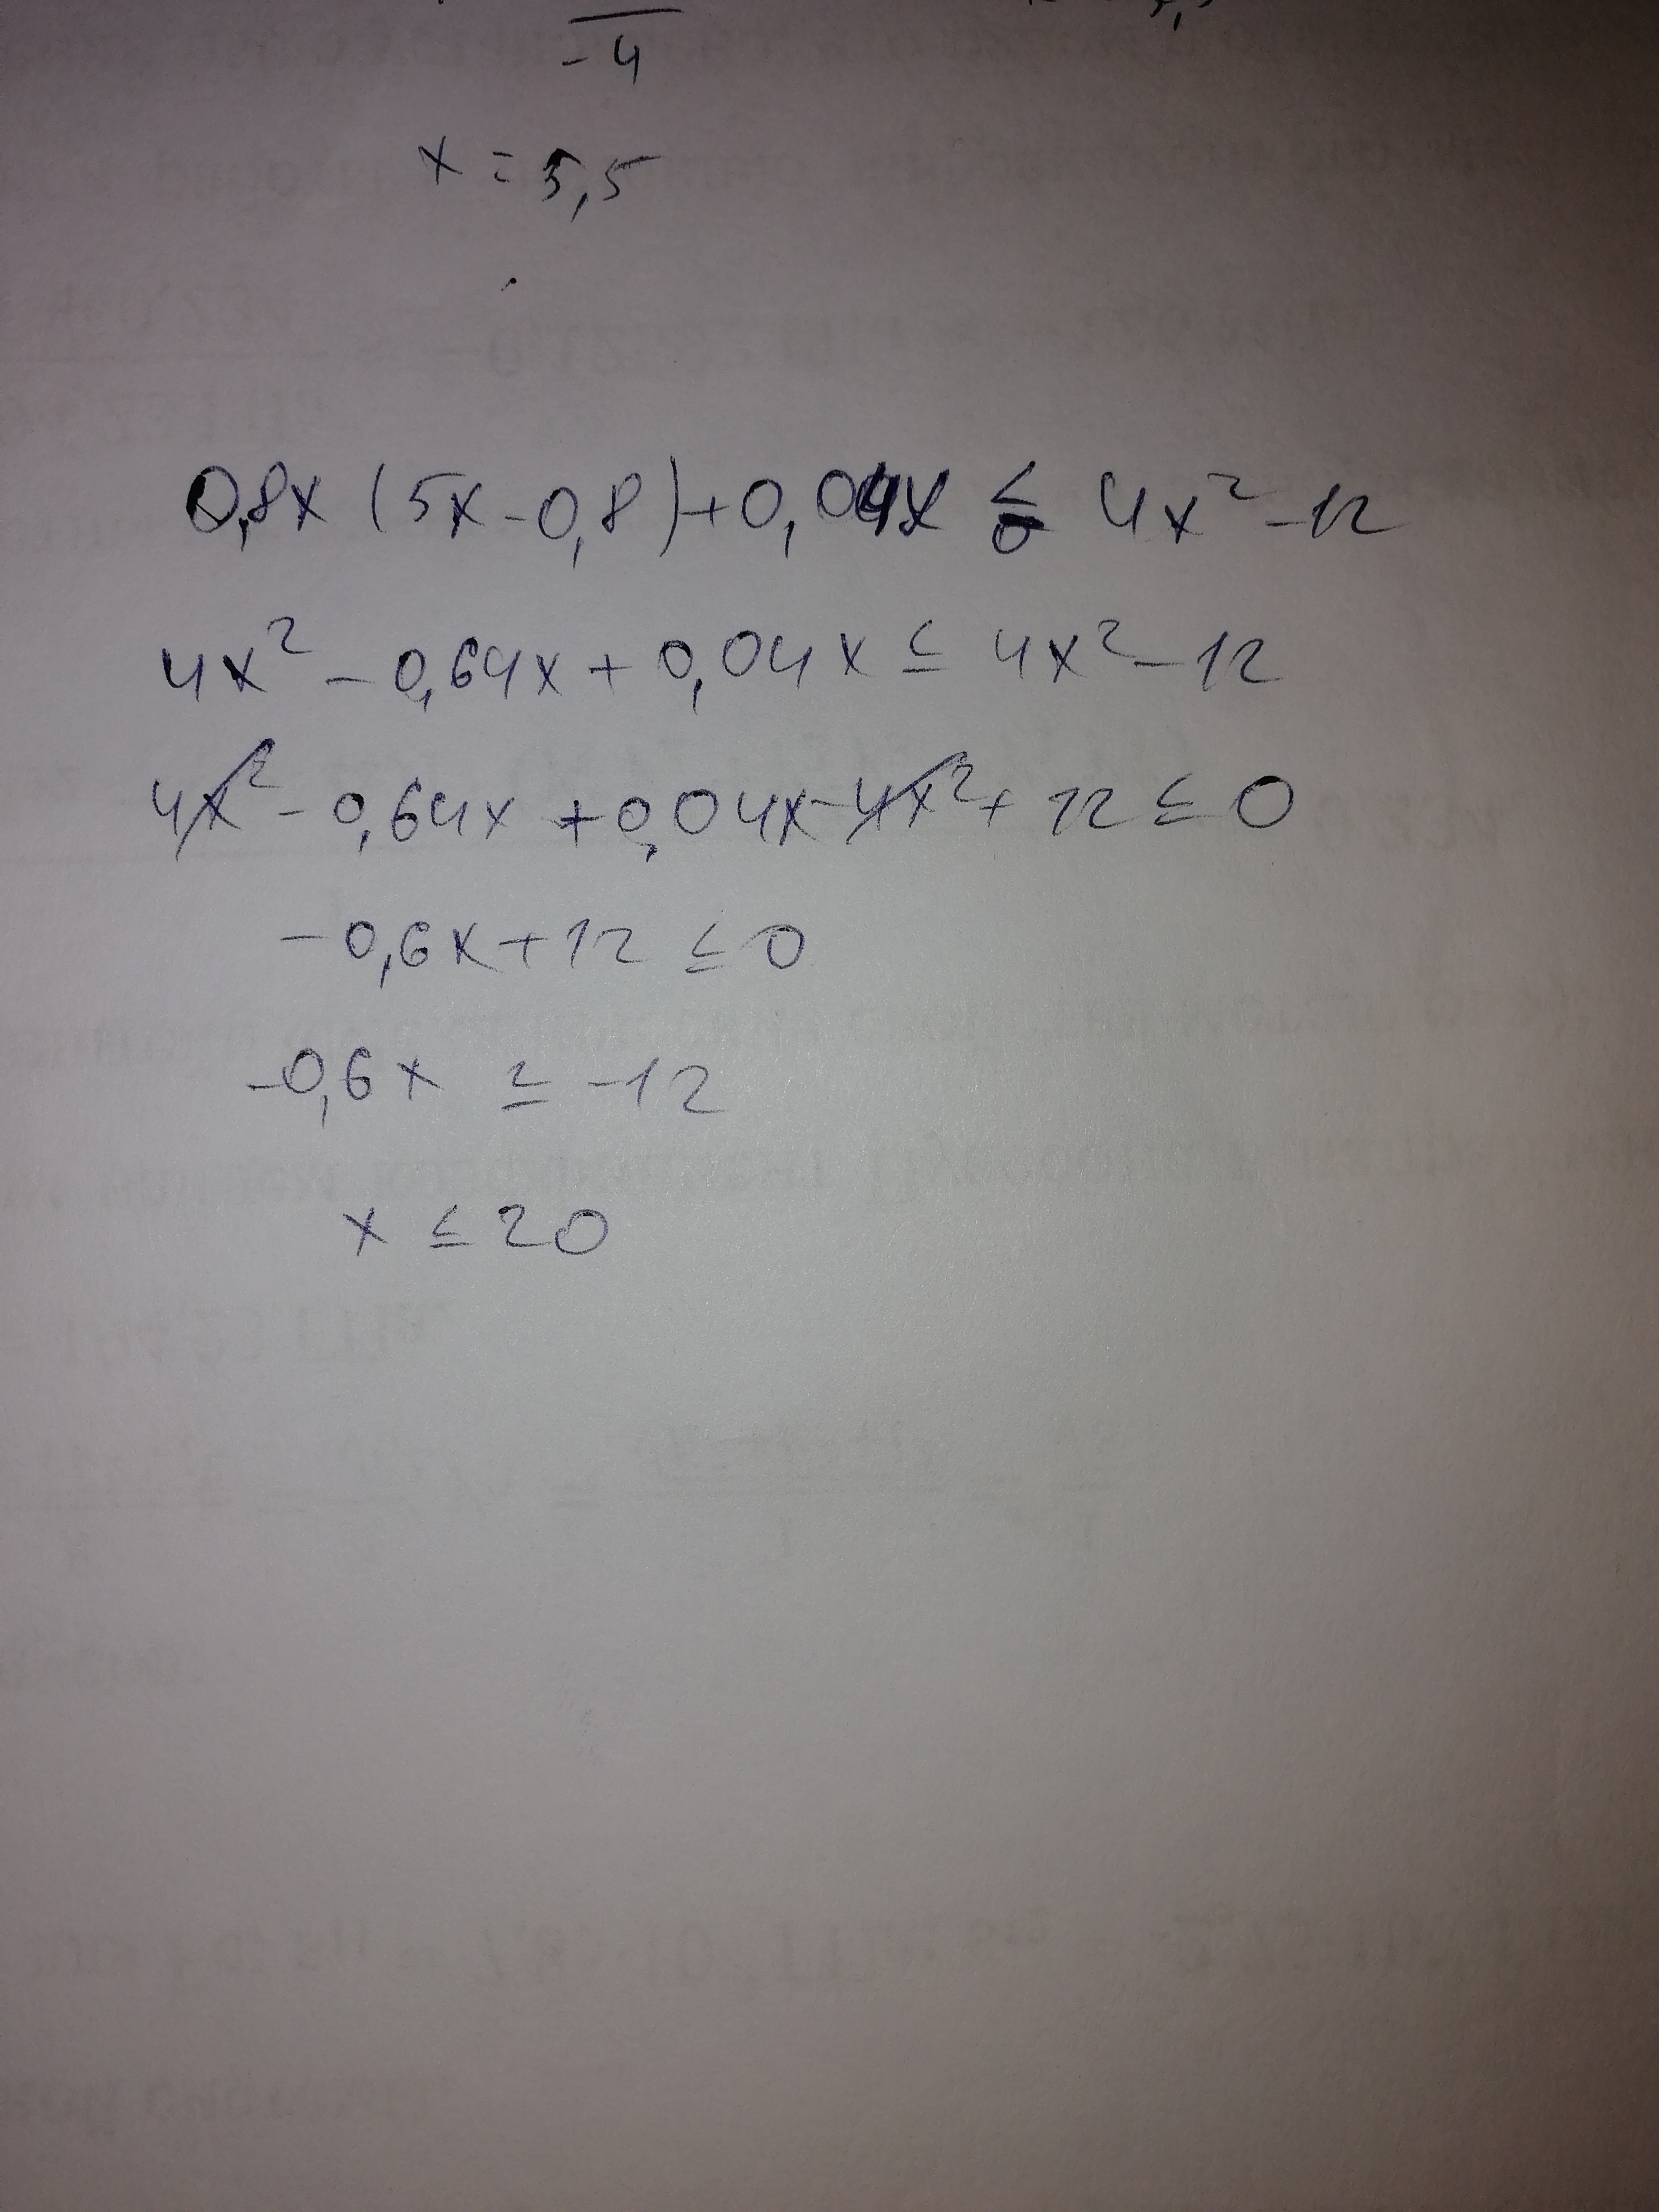 -4
x = 5,5
0,8x (5x-0,8)+0,04x ≤ 4x²-12
4x² - 0,64x + 0,04x ≤ 4x² - 12
4x² - 0,64x + 0,04x - 4x² + 12 ≤ 0
-0,6x + 12 ≤ 0
-0,6x ≥ -12
x ≤ 20